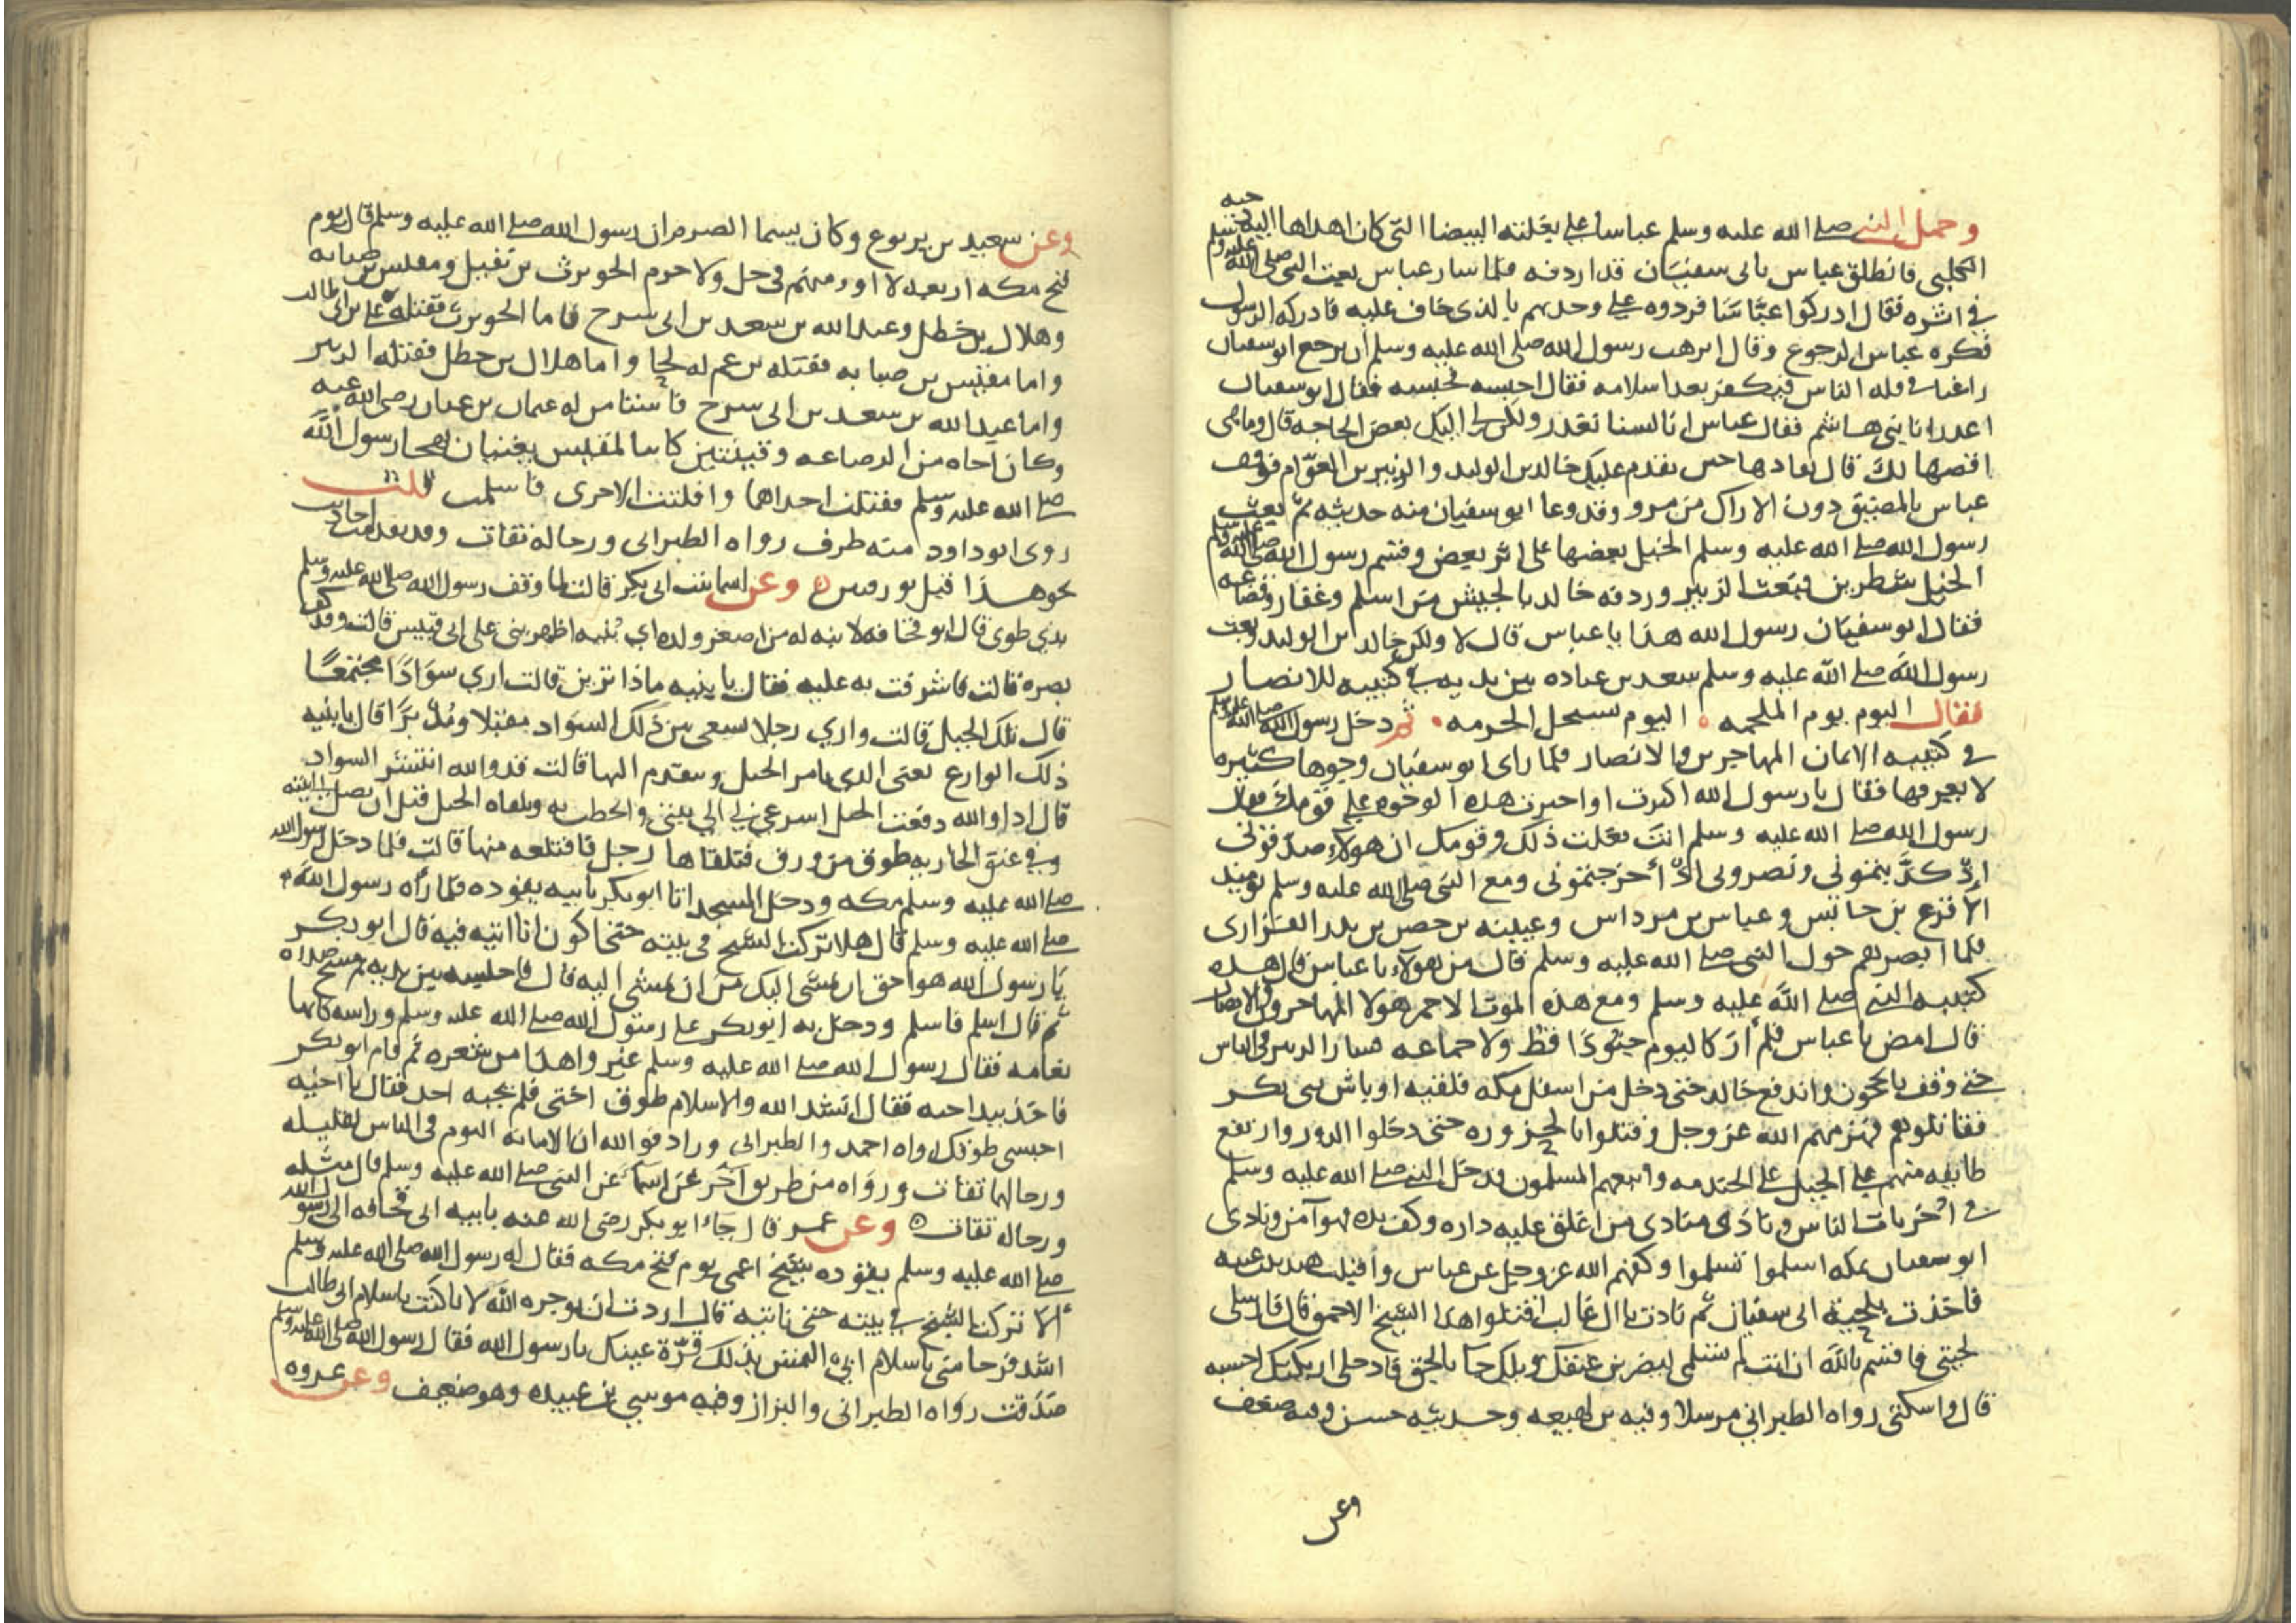 وحمل النبي صلى الله عليه وسلم عباسا على بغلته البيضا التي كان اهداها اليه دحيه
الكلبي فانطلق عباس بابى سفيان قد اردفه فلما سار عباس بعث النبي صلى الله عليه وسلم
في اثره فقال ادركوا عبّاسًا فردوه على وحدبهم بالذي خاف عليه فادركه الرسول
فكره عباس الرجوع وقال اترهب رسول الله صلى الله عليه وسلم ان يرجع ابو سفيان
راغبا في قله الناس فيكفر بعد اسلامه فقال احبسه فحبسه فقال ابو سفيان
اغدرا يا بني هاشم فقال عباس انا لسنا نغدر ولكن لي اليك بعض الحاجه قال وما هي
اقضيها لك قال نفادها حين يقدم عليك خالد بن الوليد والزبير بن العوّام فوقف
عباس بالمضيق دون الاراك من مر وقد وعا ابو سفيان منه حديثه ثم بعث
رسول الله صلى الله عليه وسلم الخيل بعضها على اثر بعض وقسم رسول الله صلى الله عليه وسلم
الخيل شطرين فبعث الزبير وردفه خالد بالجيش من اسلم وغفار وقضاعه
فقال ابو سفيان رسول الله هذا يا عباس قال لا ولكن خالد بن الوليد وبعث
رسول الله صلى الله عليه وسلم سعد بن عباده بين يديه في كتيبه للانصار
فقال اليوم يوم الملحمه اليوم تستحل الحرمه ثم دخل رسول الله صلى الله عليه وسلم
في كتيبه الايمان المهاجرين والانصار فلما راى ابو سفيان وجوها كثيره
لا يعرفها فقال يا رسول الله اكثرت او اخترت هذه الوجوه على قومك فقال
رسول الله صلى الله عليه وسلم انت فعلت ذلك وقومك ان هولاء صدّقوني
اذ كذّبتموني ونصروني اذ اخرجتموني ومع النبي صلى الله عليه وسلم يوميذ
الاقرع بن حابس وعباس بن مرداس وعيينه بن حصن بن بدر الفزاري
فلما ابصرهم حول النبي صلى الله عليه وسلم قال من هولآء يا عباس قال هذه
كتيبه النبي صلى الله عليه وسلم ومع هذه الموت الاحمر هولا المهاجرون والانصار
قال امض يا عباس فلم ار كاليوم جنودًا قط ولا جماعه فسار الزبير في الناس
حتى وقف بالحجون واندفع خالد حتى دخل من اسفل مكه فلقيه اوباش بني بكر
فقاتلوهم فهزمهم الله عز وجل وقتلوا بالحزوره حتى دخلوا الدور وارتفع
طايفه منهم على الخيل على الخندمه واتبعهم المسلمون فدخل النبي صلى الله عليه وسلم
في اخريات الناس ونادى منادى من اغلق عليه داره وكف يده فهو آمن ونادى
ابو سفيان بمكه اسلموا تسلموا وكفهم الله عز وجل عن عباس واقبلت هند بنت عتبه
فاخذت بلحيته ابى سفيان ثم نادت يا ال غالب اقتلوا هذا الشيخ الاحمق قال فارسلى
لحيتي فاقسم بالله ان انت لم تسلمى ليضربن عنقك ويلك جا بالحق فادخلى اريكتك احسبه
قال واسكتى رواه الطبراني مرسلا وفيه بن لهيعه وحديثه حسن وفيه ضعف
وعن
وعن سعيد بن يربوع وكان يسما الصرم ان رسول الله صلى الله عليه وسلم قال يوم
فتح مكه اربعه لا اومنهم في حل ولا حرم الحويرث بن نقيل ومقيس بن صبابه
وهلال بن خطل وعبد الله بن سعد بن ابى سرح فاما الحويرث فقتله على بن ابى طالب
واما مقيس بن صبابه فقتله بن عم له لحا واما هلال بن خطل فقتله الزبير
واما عبد الله بن سعد بن ابى سرح فاستامن له عثمان بن عفان رضى الله عنه
وكان اخاه من الرضاعه وقينتين كانتا لمقيس يغنيان بهجا رسول الله
صلى الله عليه وسلم فقتلت احداهما وافلتت الاخرى فاسلمت قلت
روى ابو داود منه طرف رواه الطبرانى ورجاله ثقات وقد تقدمت احاديث
نحو هذا قبل بورقتين وعن اسما بنت ابى بكر قالت لما وقف رسول الله صلى الله عليه وسلم
بذي طوى قال ابو قحافه لابنه له من اصغر ولده اي بنيه اظهرينى على ابى قبيس قالت وقد كف
بصره قالت فاشرفت به عليه فقال يا بنيه ماذا ترين قالت اري سوادًا مجتمعًا
قال تلك الخيل قالت واري رجلا يسعى بين ذلك السواد مقبلا ومدبرًا قال يا بنيه
ذلك الوازع يعنى الذي يامر الخيل ويتقدم اليها قالت قد والله انتشر السواد
قال اذا والله دفعت الخيل اسرعي بي الى بيتي وانحطت به وتلقاه الخيل قبل ان يصل الى بيته
وفي عنق الجاريه طوق من ورق فتلقاها رجل فاقتلعه منها قالت فلما دخل رسول الله
صلى الله عليه وسلم مكه ودخل المسجد اتا ابو بكر بابيه يقوده فلما رآه رسول الله
صلى الله عليه وسلم قال هلا تركت الشيخ في بيته حتى اكون انا اتيه فيه قال ابو بكر
يا رسول الله هو احق ان يمشى اليك من ان تمشى اليه قال فاجلسه بين يديه ثم مسح صدره
ثم قال اسلم فاسلم ودخل به ابو بكر على رسول الله صلى الله عليه وسلم وراسه كانها
ثغامه فقال رسول الله صلى الله عليه وسلم غيروا هذا من شعره ثم قام ابو بكر
فاخذ بيد اخته فقال انشد الله والاسلام طوق اختى فلم يجبه احد فقال يا اخيه
احتسبى طوقك رواه احمد والطبرانى وزاد فوالله ان الامانه اليوم في الناس لقليله
ورجالهما ثقات ورواه من طريق آخر عن اسما عن النبى صلى الله عليه وسلم قال مثله
ورجاله ثقات وعن عمر قال جاء ابو بكر رضى الله عنه بابيه ابى قحافه الى رسول الله
صلى الله عليه وسلم يقوده شيخ اعمى يوم فتح مكه فقال له رسول الله صلى الله عليه وسلم
ألا تركت الشيخ في بيته حتى ناتيه قال اردت ان يوجره الله لانا كنت باسلام ابى طالب
اشد فرحا منى باسلام ابي التمس بذلك قرّة عينك يا رسول الله فقال رسول الله صلى الله عليه وسلم
صدقت رواه الطبرانى والبزاز وفيه موسى بن عبيده وهو ضعيف وعن عروه